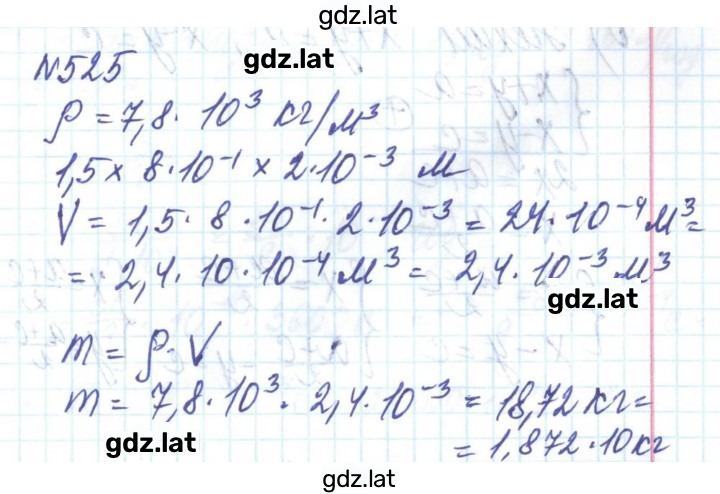 gdz.lat
№525
gdz.lat
ρ = 7,8 · 10³ кг/м³
1,5 × 8·10⁻¹ × 2·10⁻³ м
V = 1,5 · 8 · 10⁻¹ · 2 · 10⁻³ = 24 · 10⁻⁴ м³ =
= 2,4 · 10 · 10⁻⁴ м³ = 2,4 · 10⁻³ м³
gdz.lat
m = ρ · V
m = 7,8 · 10³ · 2,4 · 10⁻³ = 18,72 кг =
= 1,872 · 10 кг
gdz.lat
gdz.lat